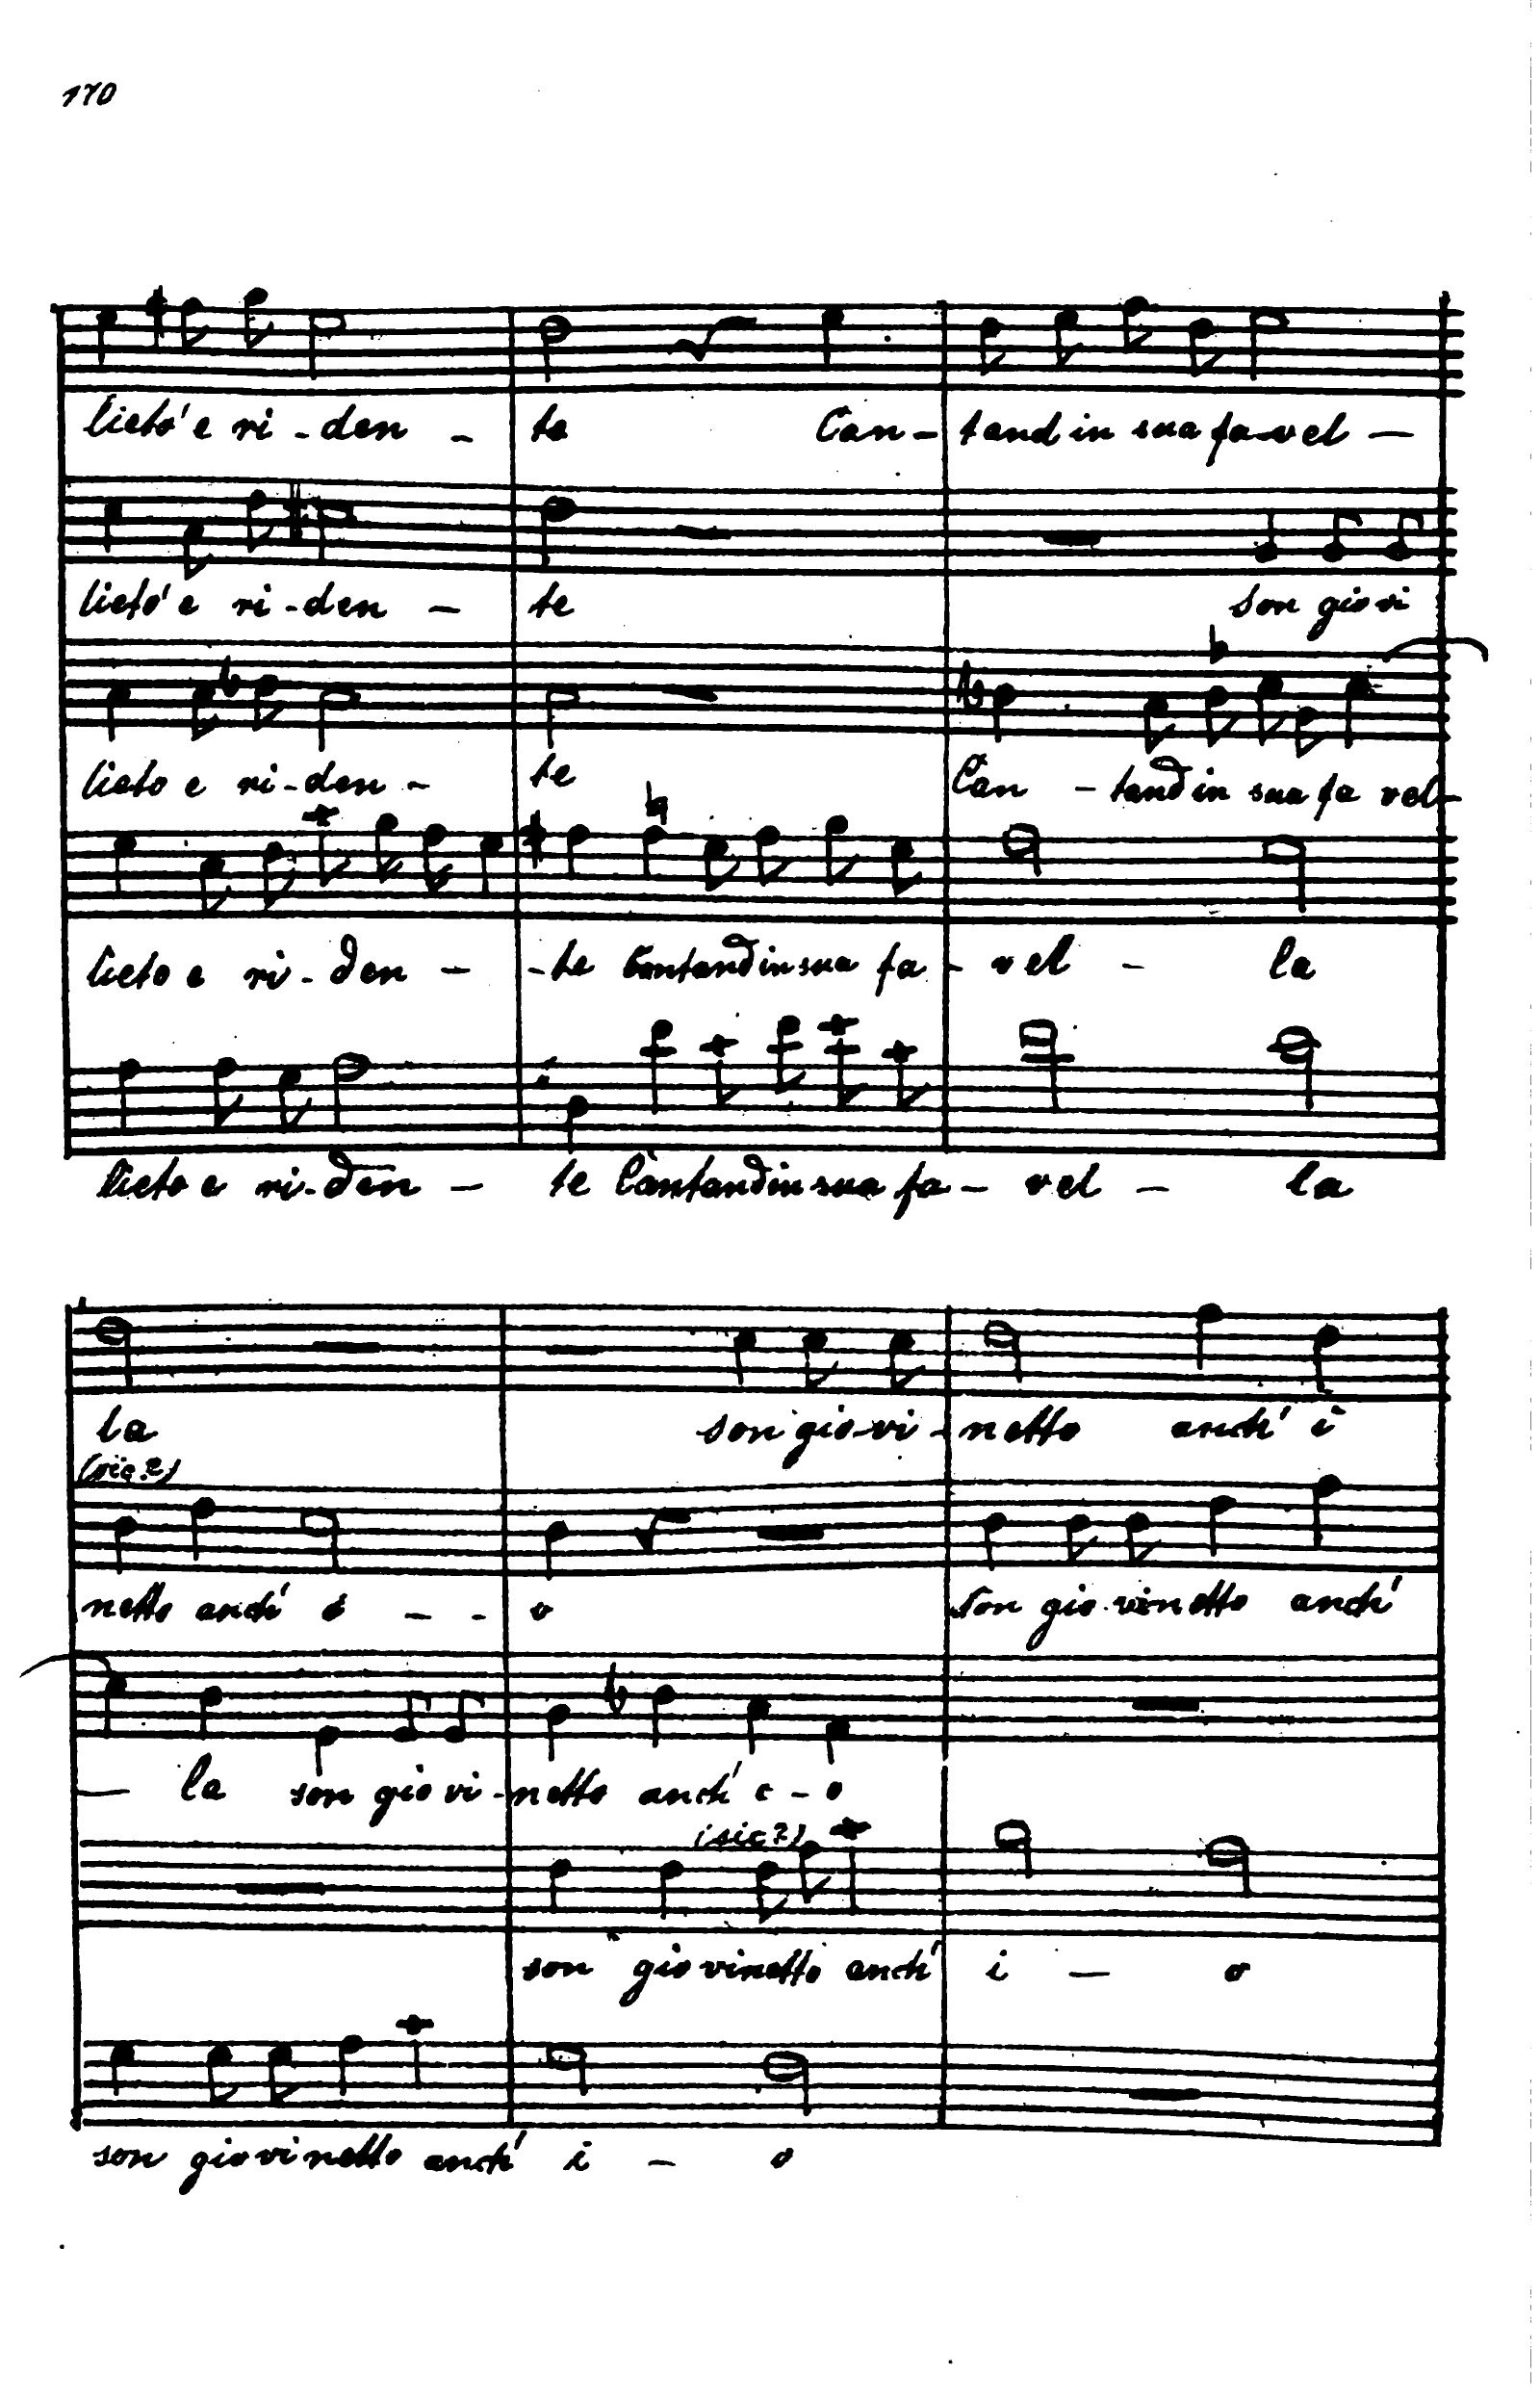 170
lieto' e ri - den - te Can - tand in sua fa - vel -
lieto' e ri - den - te son giovi
lieto e ri - den - te Can - tand in sua fa vel -
lieto e ri - den - - te Cantand in sua fa - vel - la
lieto e ri - den - te Cantand in sua fa - vel - la
la son gio - vi - netto anch' i
(sic?)
netto anch' i - - o son gio - vinetto anch'
- la son gio vi - netto anch' i - o
(sic?)
son giovinetto anch' i - o
son giovinetto anch' i - o